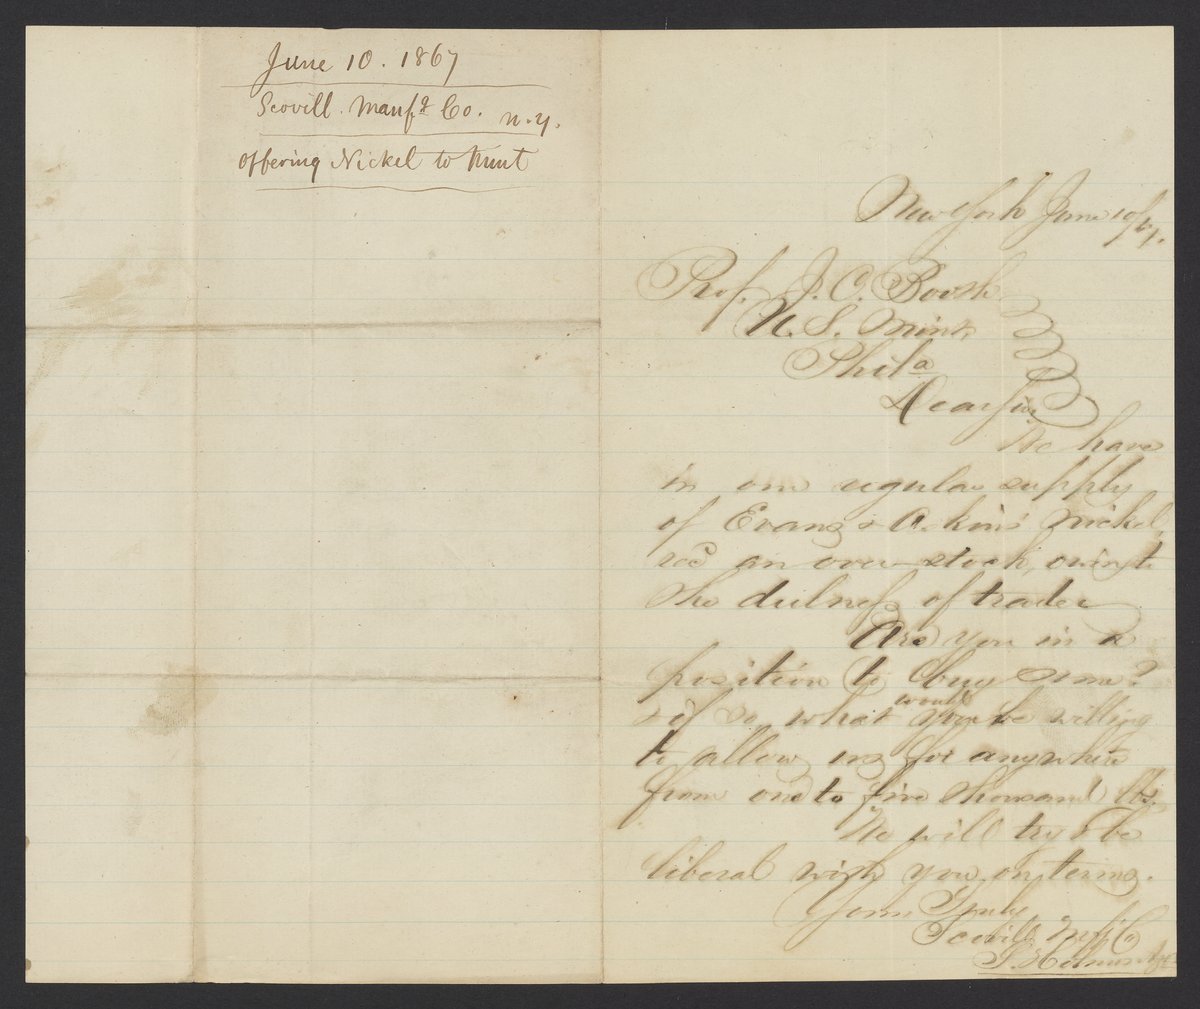 June 10. 1867
Scovill. Manfg Co. N.Y.
offering Nickel to Mint
New York June 10/67.
Prof. J. C. Booth
U. S. Mint,
Phila
Dear Sir
We have
in our regular supply
of Evans & Askins' Nickel,
rec'd an over stock, owing to
the dulness of trade.
Are you in a
position to buy some?
& if so, what would you be willing
to allow us for anywhere
from one to five thousand lbs.
We will try & be
liberal with you on terms.
Yours Truly
Scovill Mfg Co